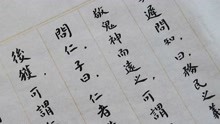 遲問知子曰務民之義
敬鬼神而遠之可謂
問仁子曰仁者
後獲可謂